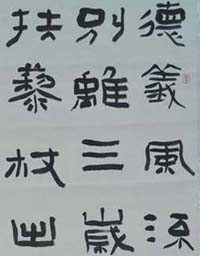 德義風流
別離三歲
扶藜杖出